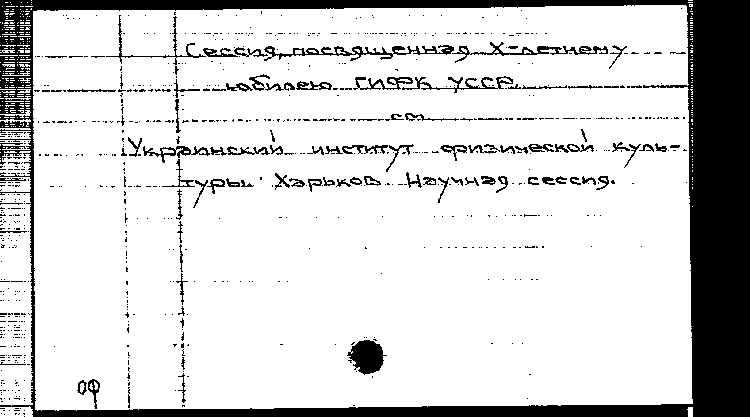 Сессия, посвященная X-летнему
юбилею ГИФК УССР.
см
Украинский институт физической куль-
туры. Харьков. Научная сессия.